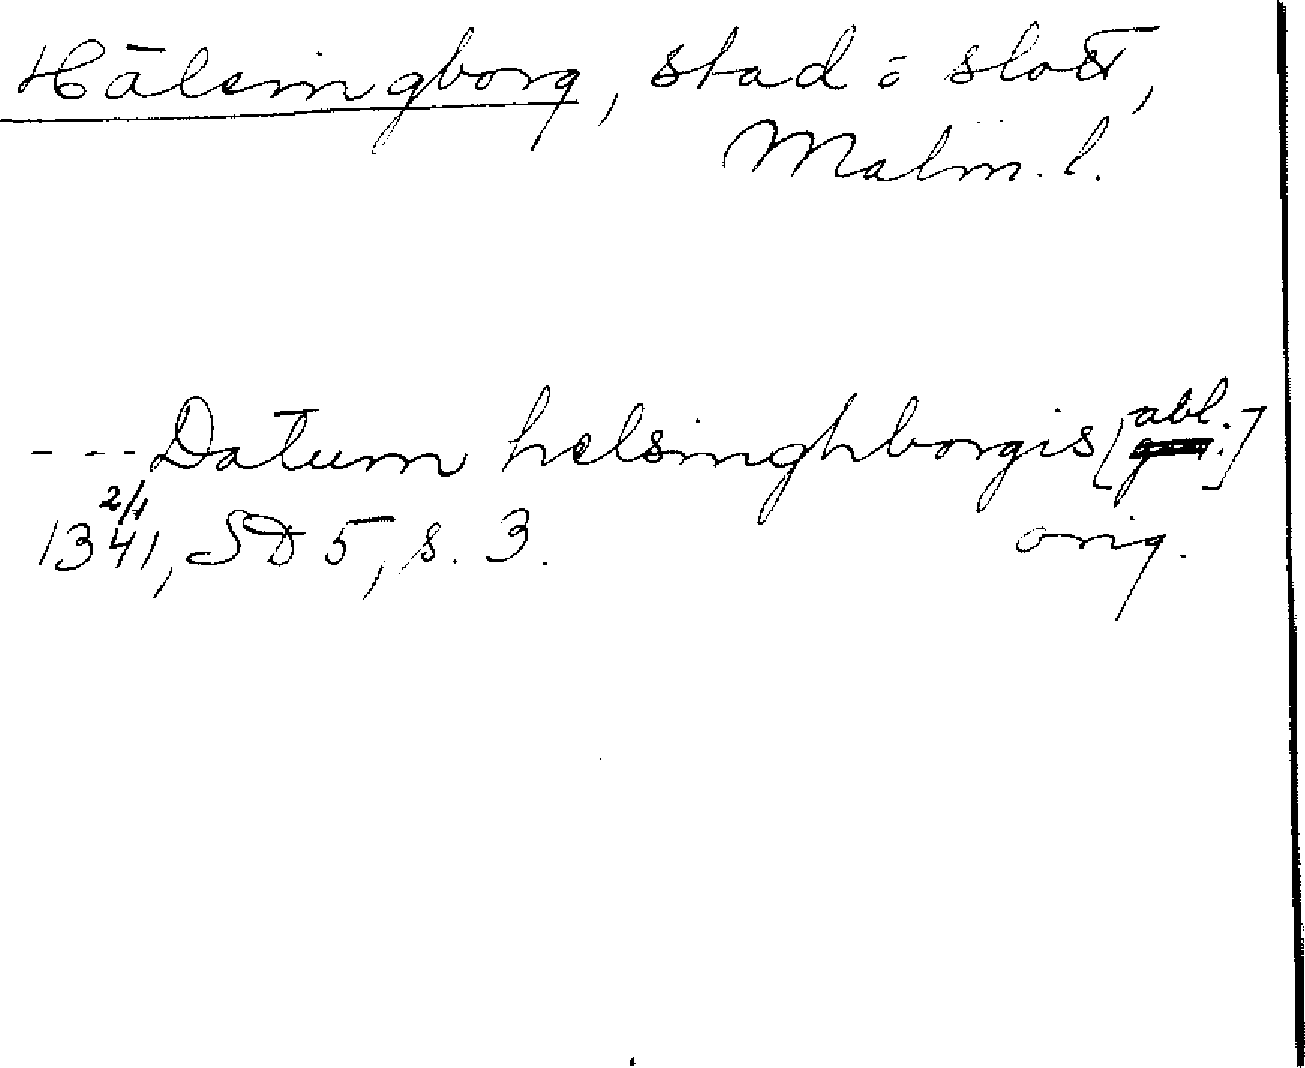 Hälsingborg, stad o slott,
Malm. l.
- - - Datum helsinghborgis [abl.]
1341, 2/1 SD 5, s. 3. orig.